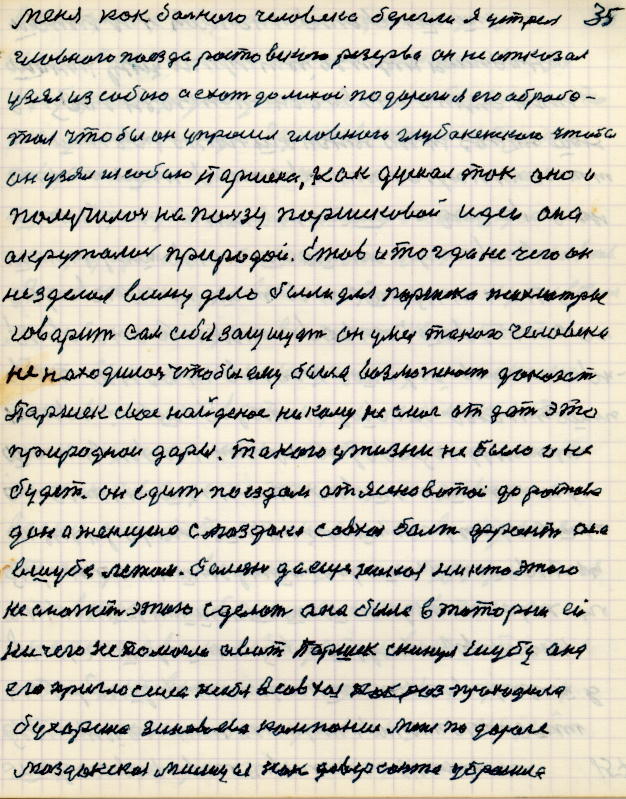 меня как больного человека берегли я утрел 35
главного поезда ростовского резерва он не отказал
узял из собою а ехат даликой по дороги я его обробо-
тал чтобы он упросил главного глубакенского чтобы
он узял из собаю Паршека, как думал так оно и
получилос на ползу паршековой идеи она
акружалас природой. Стов и тогда не чего он
не зделал вину дело были для паршека
говарит сам себе он умел такого человека
не находилос чтобы ему была возможност доказат
Паршек свое найденое никому не смог от дат это
природной дары. такого ужизни не было и не
будет. он едит поездам от Ясеноватой до ростова
дон а женщина с маздока савхоз балт фронт она
вшубе летом. балезн да еще какая никто этого
не сможит этого сделат она была в
ничего не помогло а вот Паршек скинул шубу она
его пригласила ксебе в савхоз как раз проходила
бухарина зиновева компание мы по дороге
маздокскоя милиция как убрание